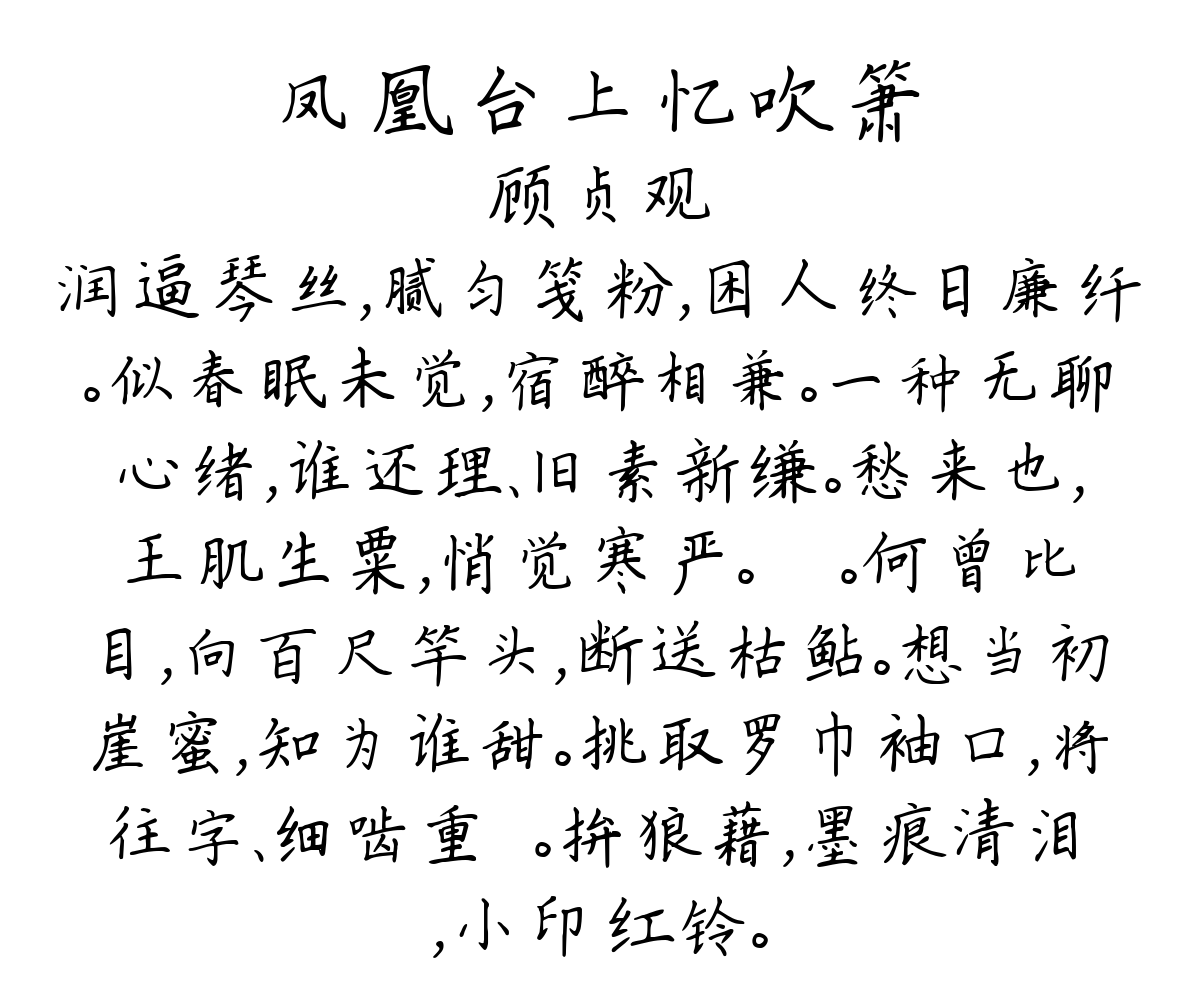 凤凰台上忆吹箫
顾贞观
润逼琴丝,腻匀笺粉,困人终日廉纤
。似春眠未觉,宿醉相兼。一种无聊
心绪,谁还理、旧素新缣。愁来也,
玉肌生粟,悄觉寒严。 。何曾比
目,向百尺竿头,断送枯鲇。想当初
崖蜜,知为谁甜。挑取罗巾袖口,将
往字、细啮重 。拚狼藉,墨痕清泪
,小印红钤。